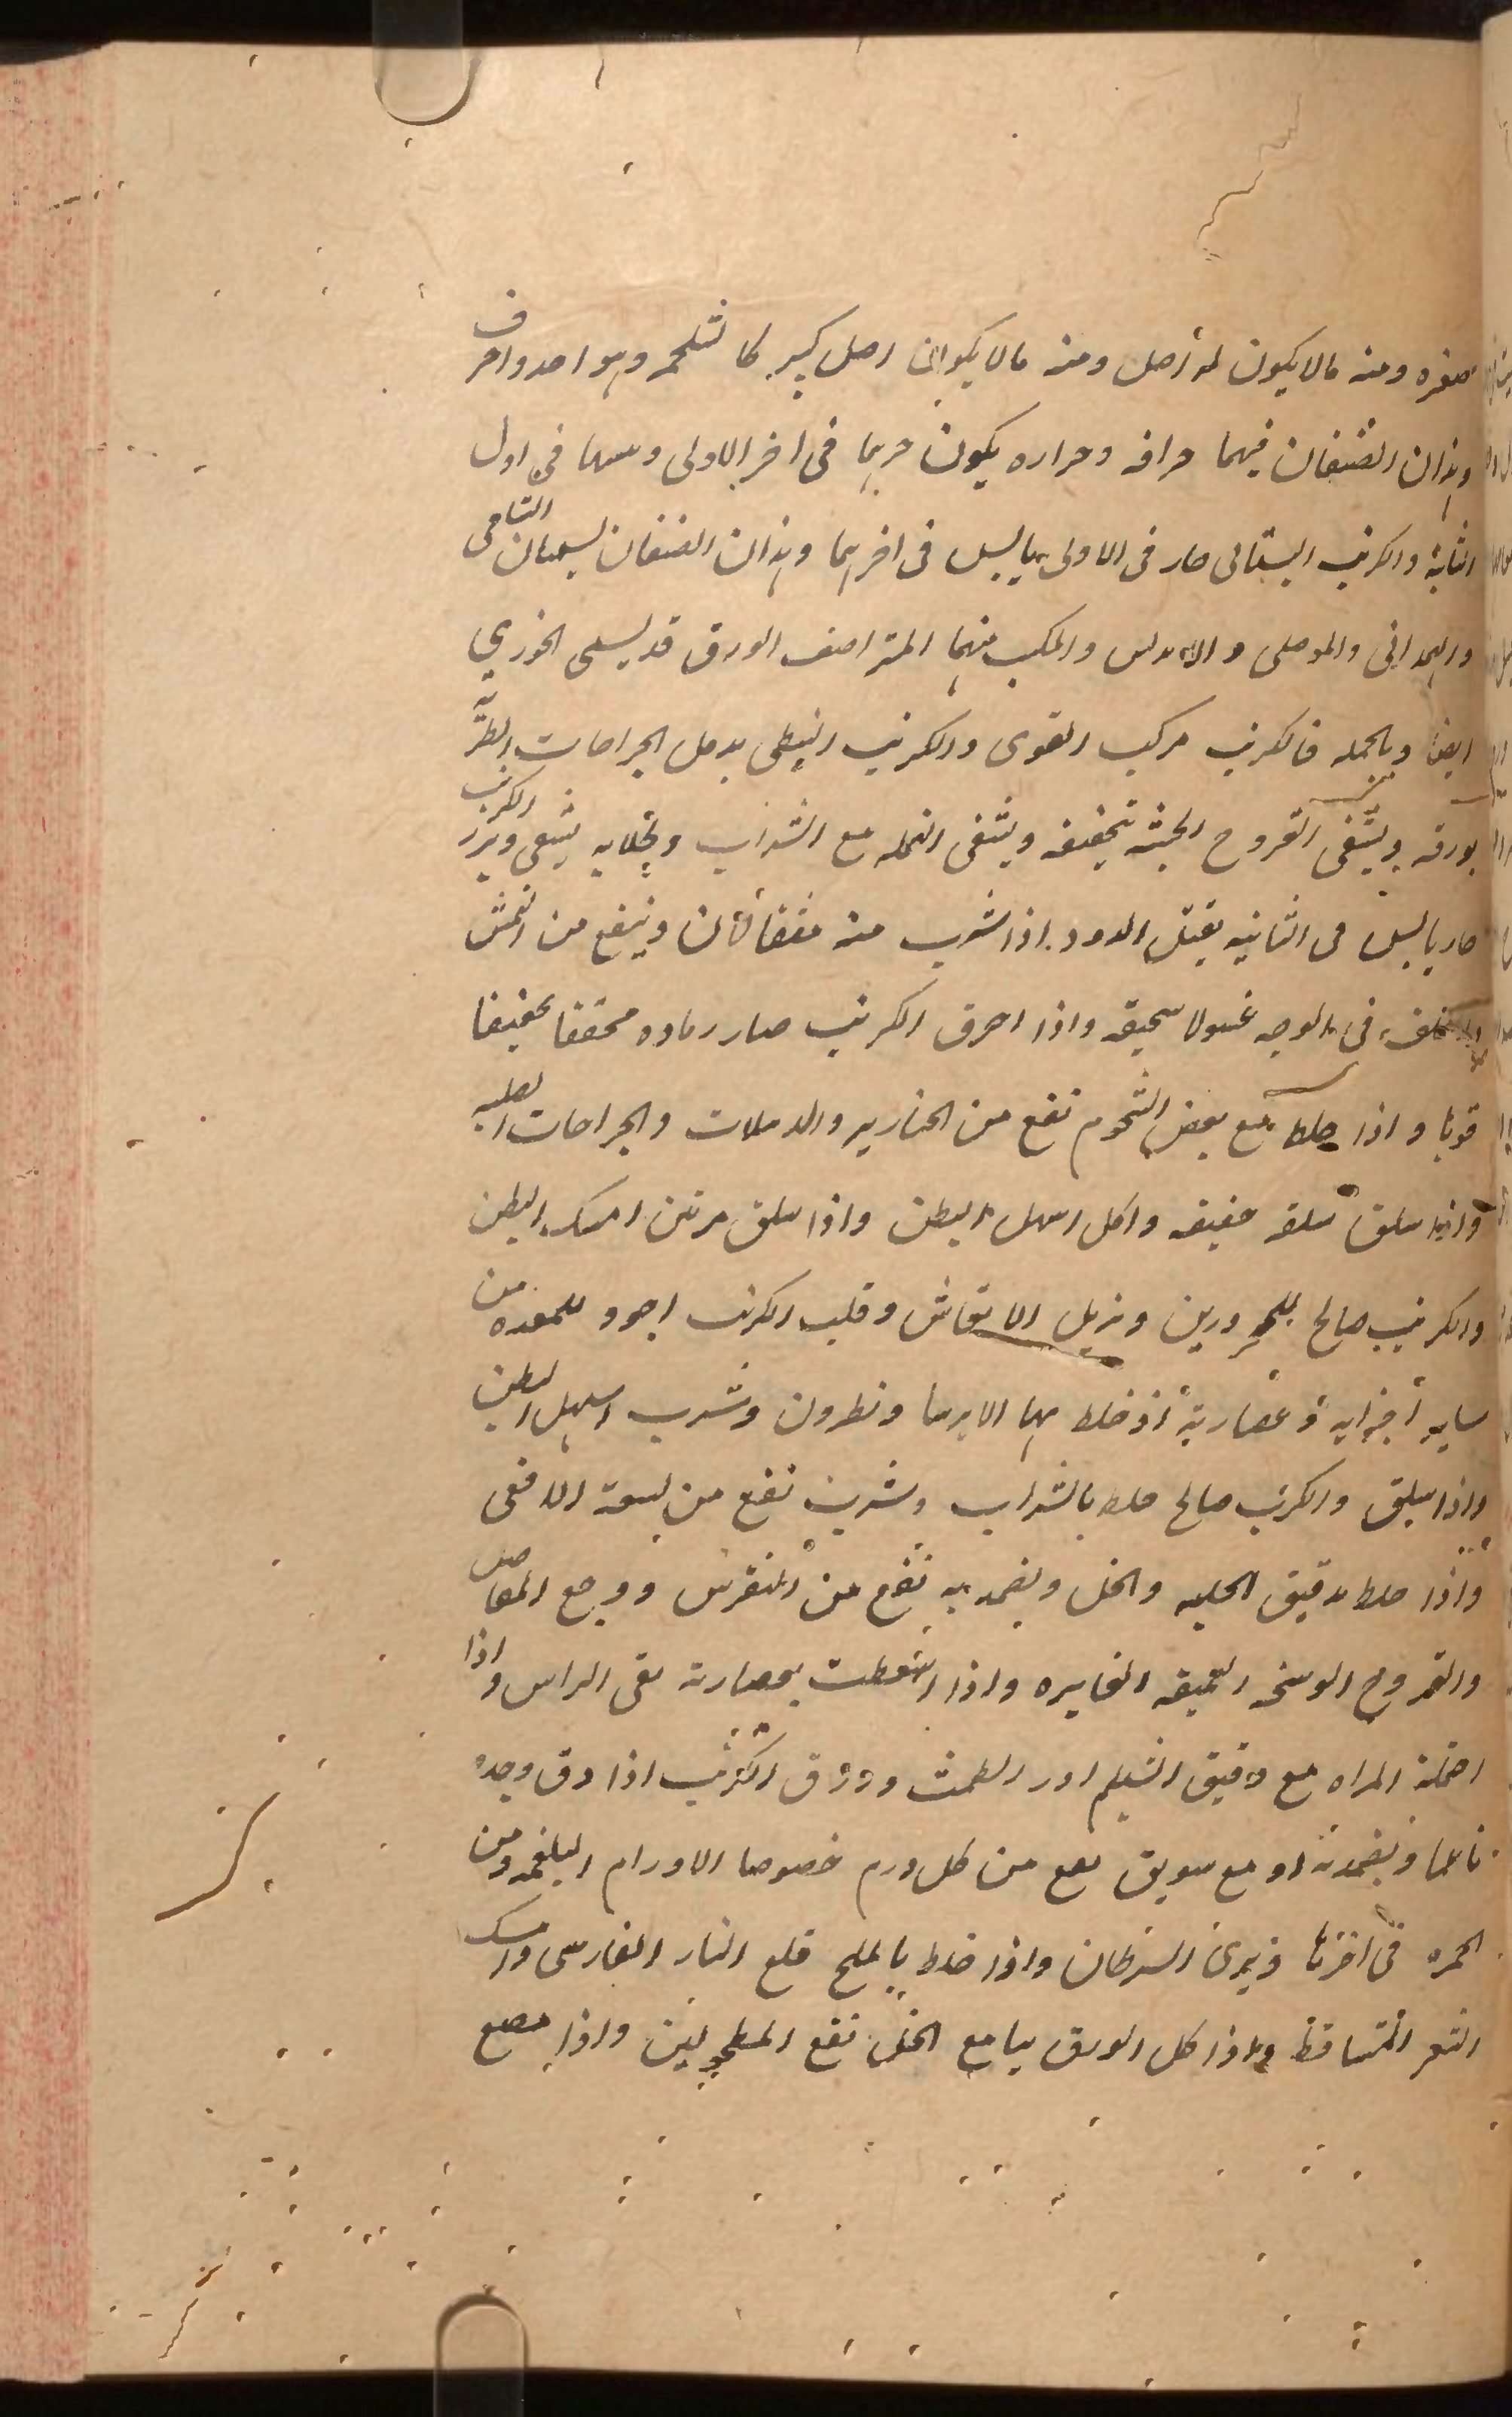 صغره ومنه مالا يكون له أصل ومنه مالا يكون اصل كبير كالشلجم وهو احد واحرف
وهذان الصنفان فيهما حرافه وحراره يكون حربهما فى اخر الاولى ويبسهما فى اول
الثانية والكرنب البستانى حار فى الاولى يابس فى اخرهما وهذان الصنفان يسميان الشامى
والهمدانى والموصلى و والمكبب منهما المتراصف الورق قد يسمى الخوزي
ايضا وبالجمله فالكرنب مركب القوى والكرنب النبطى يدمل الجراحات الطريه
بورقه ويشفى القروح الخبيثه تجفيفه ويشفى النمله مع الشراب وبجلايه يشفى وبزر الكرنب
حار يابس فى الثانيه يقتل الدود اذا شرب منه مثقالان وينفع من النمش
والكلف فى الوجه غسولا سحيقه واذا احرق الكرنب صار رماده مجففا تجفيفا
قويا واذا خلط مع بعض الشحوم نفع من الخنازير والدملات والجراحات الصلبه
واذا سلق سلقه خفيفه واكل اسهل البطن واذا سلق مرتين امسك البطن
والكرنب صالح للمحرورين ويزيل الارتعاش وقلب الكرنب اجود للمعده من
ساير أجزايه وعصارته أذ خلط بها الايرسا ونطرون وشرب اسهل البطن
واذا سلق والكرنب صالح خلط بالشراب وشرب نفع من لسعة الافعى
واذا خلط بدقيق الحلبه والخل ويضمد به نفع من النقرس ووجع المفاصل
والقروح الوسخه العميقه الغايره واذا استعطت بعصارته نقى الراس واذا
احتملته المراه مع دقيق الشيلم ادر الطمث وورق الكرنب اذا دق وحده
ناعما ويضمد به او مع سويق نفع من كل ورم خصوصا الاورام البلغميه ومن
الحمره فى اخرها ويبرى السرطان واذا خلط بالملح قلع النار الفارسى وامسك
الشعر المتساقط واذا اكل الورق نيا مع الخل نفع المطحولين واذا مضغ